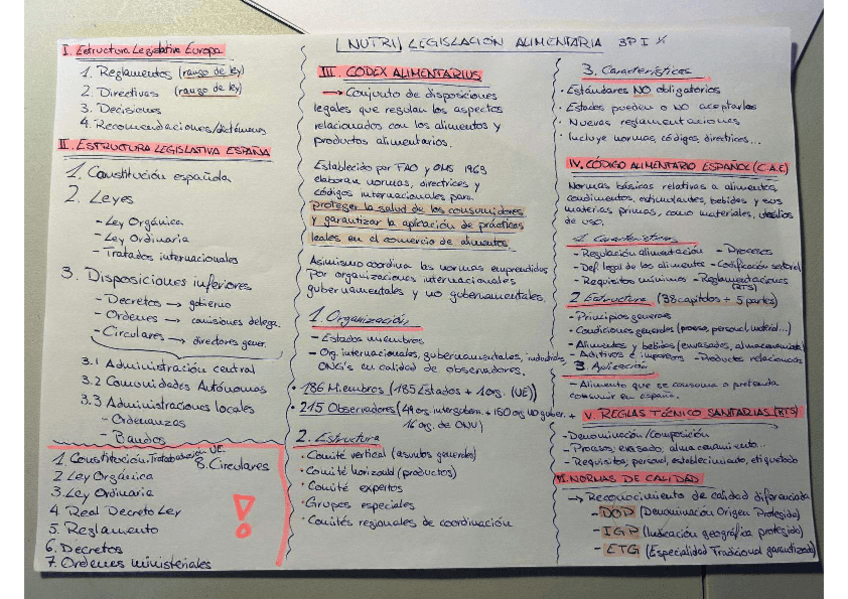 [NUTRI] LEGISLACIÓN ALIMENTARIA 3P I
I. Estructura Legislativa Europa
1. Reglamentos (rango de ley)
2. Directivas (rango de ley)
3. Decisiones
4. Recomendaciones/dictámenes
II. ESTRUCTURA LEGISLATIVA ESPAÑA
1. Constitución española
2. Leyes
- Ley Orgánica
- Ley Ordinaria
- Tratados internacionales
3. Disposiciones inferiores
- Decretos → gobierno
- Ordenes → comisiones delega.
- Circulares → directores gener.
3.1 Administración central
3.2 Comunidades Autónomas
3.3 Administraciones locales
- Ordenanzas
- Bandos
1. Constitución. UE.
8. Circulares
2 Ley Orgánica
3. Ley Ordinaria
4 Real Decreto Ley
5. Reglamento
6. Decretos
7. Ordenes ministeriales
!
III. CODEX ALIMENTARIUS
→ Conjunto de disposiciones
legales que regulan los aspectos
relacionados con los alimentos y
productos alimentarios.
Establecido por FAO y OMS 1963
elaboran normas, directrices y
códigos internacionales para:
proteger la salud de los consumidores
y garantizar la aplicación de prácticas
leales en el comercio de alimentos
Asimismo coordina las normas emprendidas
por organizaciones internacionales
gubernamentales y no gubernamentales.
1. Organización
- Estados miembros
- Org. internacionales, gubernamentales, industrias
ONG's en calidad de observadores.
• 186 Miembros (185 Estados + 1 org. (UE))
• 215 Observadores (49 org. intergubern. + 150 org NO guber. +
16 org. de ONU)
2. Estructura
• Comité vertical (asuntos generales)
• Comité horizontal (productos)
• Comité expertos
• Grupos especiales
• Comités regionales de coordinación
3. Características
• Estándares NO obligatorios
• Estados pueden o NO aceptarlos
• Nuevas reglamentaciones
• Incluye normas, códigos, directrices...
IV. CÓDIGO ALIMENTARIO ESPAÑOL (C.A.E)
Normas básicas relativas a alimentos,
condimentos, estimulantes, bebidas y sus
materias primas, como materiales, utensilios
de uso.
1. Características
- Regulación alimentación - Procesos
- Def. legal de los alimentos - Codificación sectorial
- Requisitos mínimos - Reglamentaciones
(RTS)
2 Estructura (38 capítulos + 5 partes)
- Principios generales
- Condiciones generales (proceso, personal, material...)
- Alimentos y bebidas (envasados, almacenamiento)
- Aditivos e impurezas - Productos relacionados
3. Aplicación
- Alimento que se consuma o pretenda
consumir en españa.
V. REGLAS TÉCNICO SANITARIAS (RTS)
- Denominación/Composición
- Procesos, envasado, almacenamiento...
- Requisitos, personal, establecimiento, etiquetado
VI. NORMAS DE CALIDAD
→ Reconocimiento de calidad diferenciada
- DOP (Denominación Origen Protegida)
- IGP (Indicación geográfica protegida)
- ETG (Especialidad Tradicional garantizada)